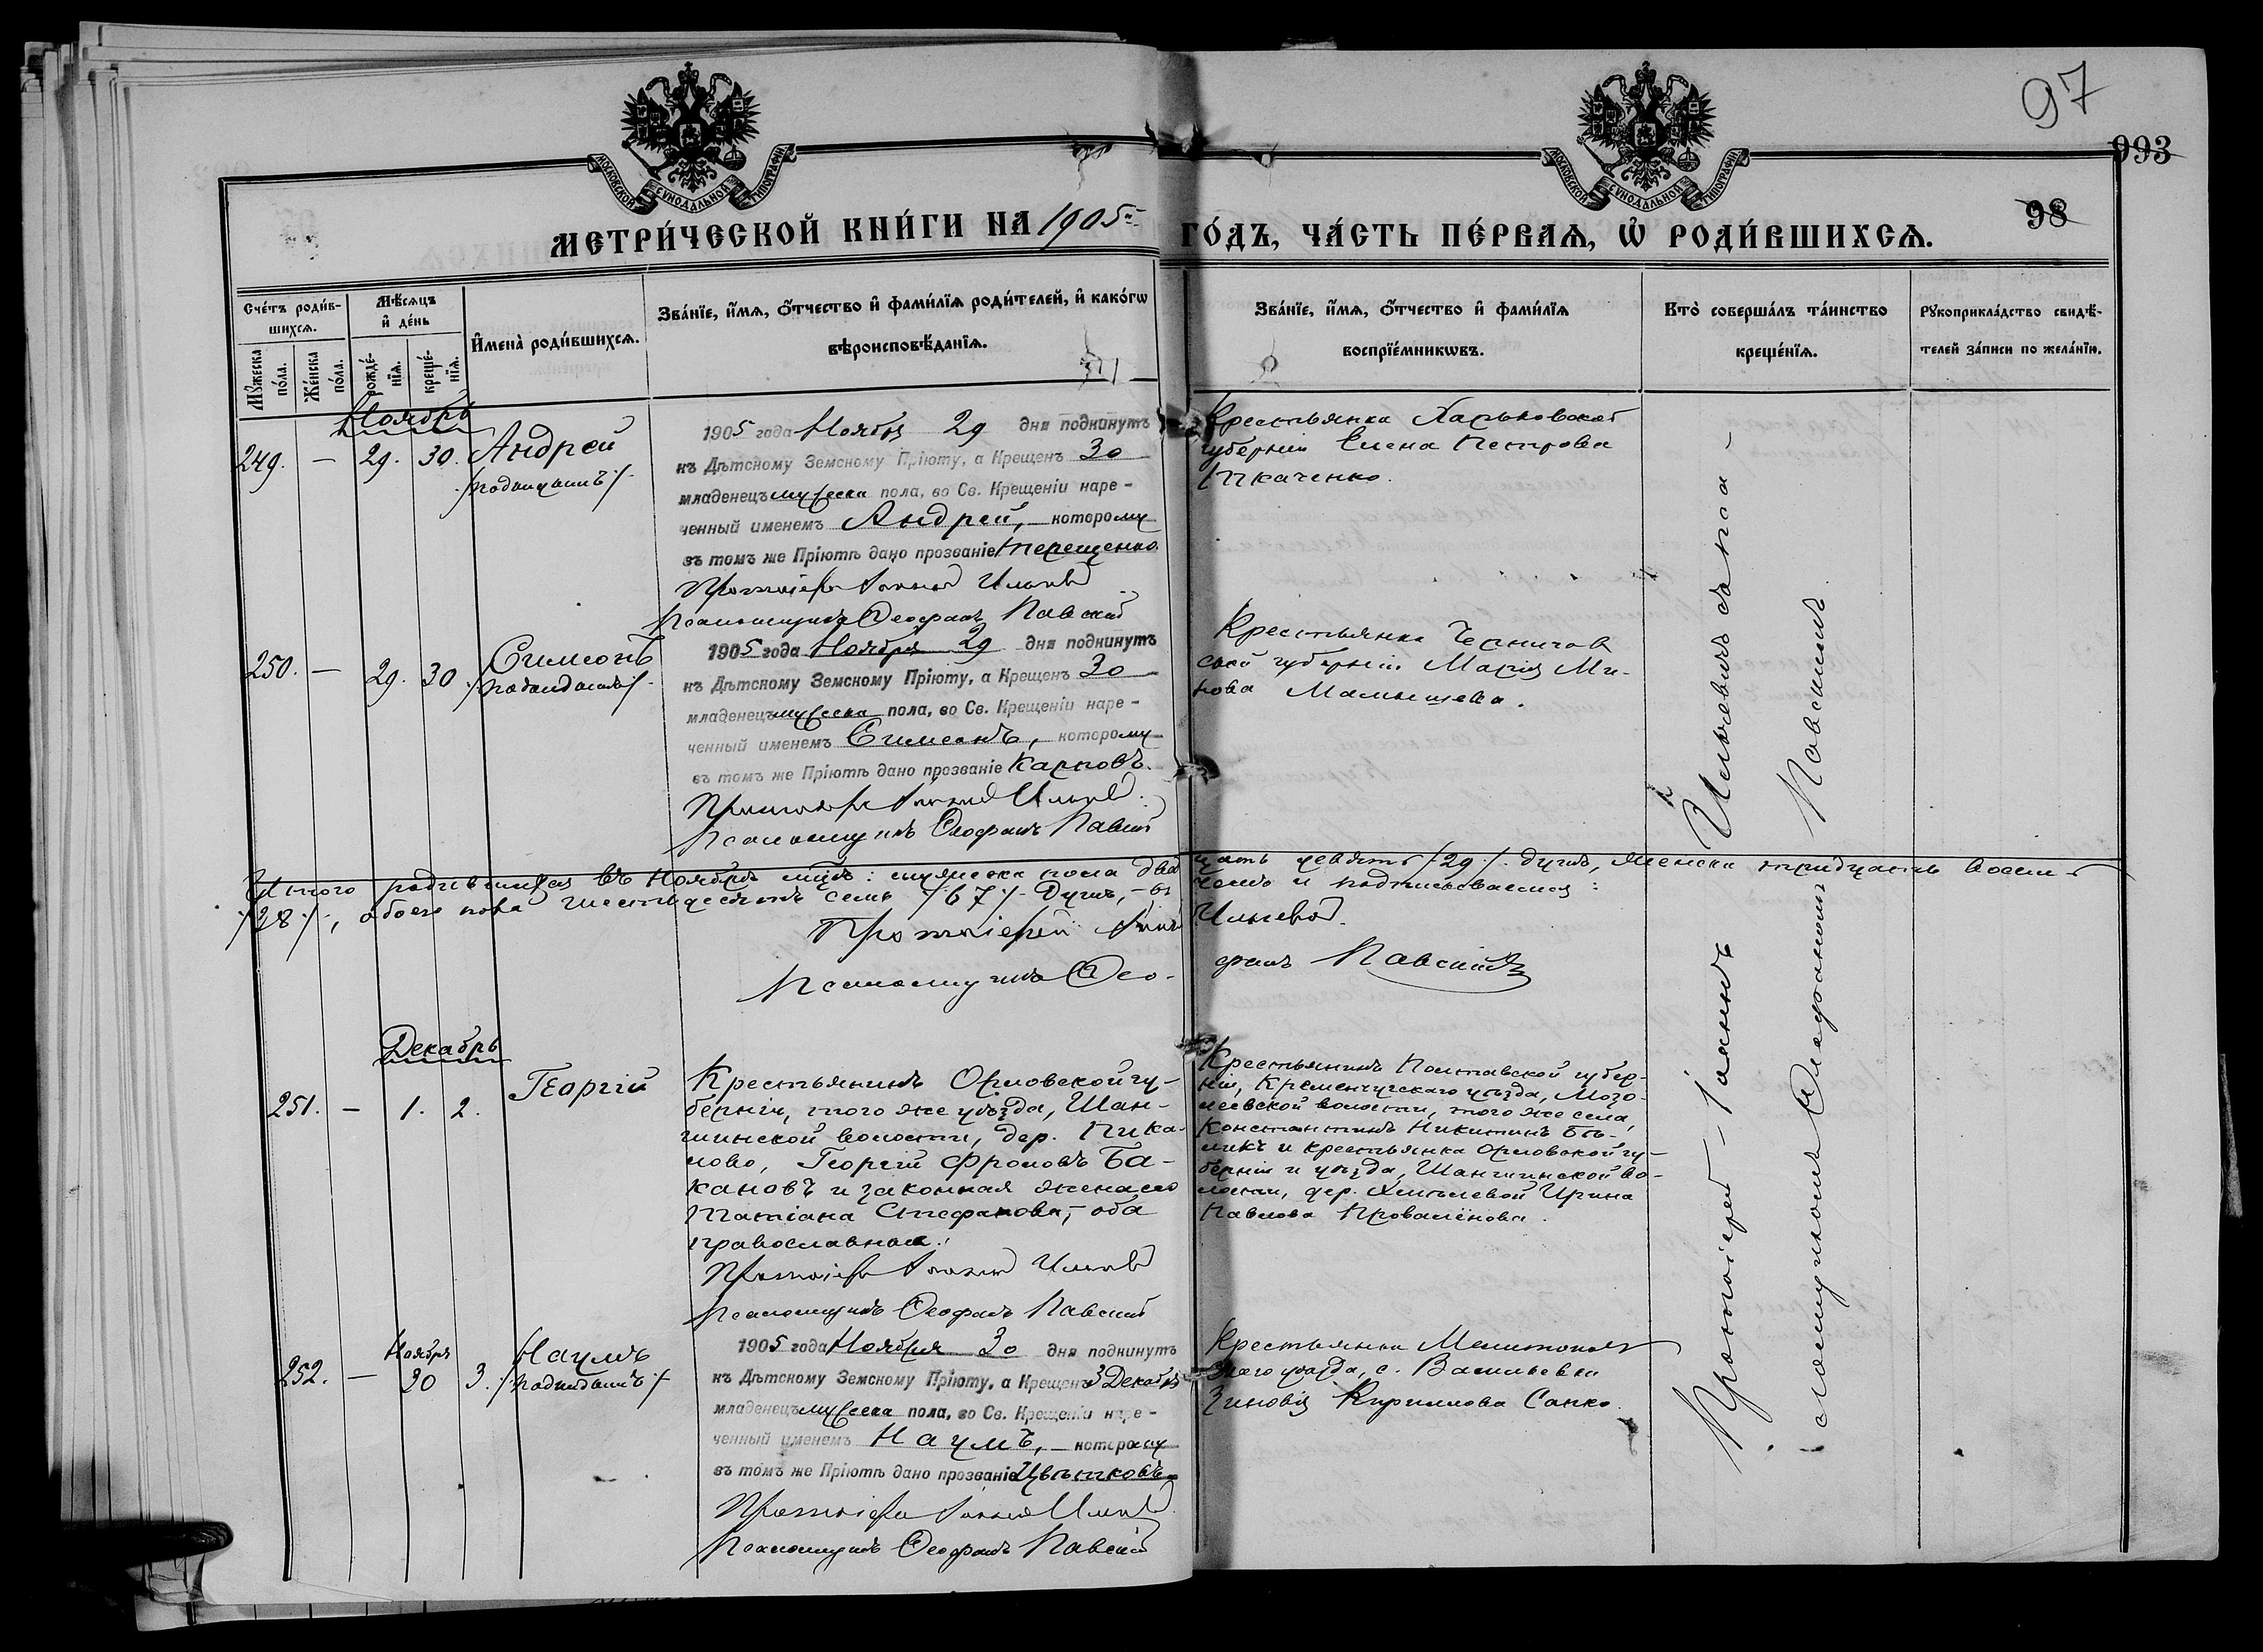 97
993
98
МОСКОВСКОЙ СѴНОДАЛЬНОЙ ТИПОГРАФІИ
МОСКОВСКОЙ СѴНОДАЛЬНОЙ ТИПОГРАФІИ
МЕТРИ́ЧЕСКОЙ КНИ́ГИ НА 1905й ГО́ДЪ, ЧА́СТЬ ПЕ́РВАѦ, Ѡ҆ РОДИ́ВШИХСѦ.
Сче́тъ роди́в-
шихсѧ.
Мꙋ́жеска по́ла.
Же́нска по́ла.
Мѣ́сѧцъ
и҆ де́нь
рожде́-
нїѧ.
креще́-
нїѧ.
И҆мена̀ роди́вшихсѧ.
Зва́нїе, и҆́мѧ, ѻ҆́тчество и҆ фами́лїѧ роди́телей, и҆ како́гѡ
вѣроисповѣ́данїѧ.
Зва́нїе, и҆́мѧ, ѻ҆́тчество и҆ фами́лїѧ
воспрїе́мникѡвъ.
Кто̀ соверша́лъ та́инство
креще́нїѧ.
Рꙋкоприкла́дство свидѣ́-
телей за́писи по жела́нїю.
Ноябрь
249. — 29. 30. Андрей
/подкидышъ/
1905 года Ноября 29 дня подкинутъ
къ Дѣтскому Земскому Пріюту, а Крещенъ 30
младенецъ мужеска пола, во Св. Крещеніи наре-
ченный именемъ Андрей, которому
въ томъ же Пріютѣ дано прозваніе Терещенко.
Протоіерей Іоаннъ Ильичевъ
Псаломщикъ Ѳеофанъ Павскій
Крестьянка Харьковской
губерніи Елена Петрова
Ткаченко.
250. — 29. 30 Симеонъ
/подкидышъ/
1905 года Ноября 29 дня подкинутъ
къ Дѣтскому Земскому Пріюту, а Крещенъ 30
младенецъ мужеска пола, во Св. Крещеніи наре-
ченный именемъ Симеонъ, которому
въ томъ же Пріютѣ дано прозваніе Карповъ.
Протоіерей Іоаннъ Ильичевъ
Псаломщикъ Ѳеофанъ Павскій
Крестьянка Чернигов
ской губерніи Марія Ми-
нова Мамышева.
Итого родившихся въ Ноябрѣ мцѣ: мужеска пола двадцать девять /29/ душъ, женска тридцать восемь
/38/, обоего пола шестьдесятъ семь /67/ душъ, — въ чемъ и подписываемся:
Протоіерей Іоаннъ Ильичевъ.
Псаломщикъ Ѳеофанъ Павскій
Декабрь
251. — 1. 2. Георгій
Крестьянинъ Орловской гу-
берніи, того же уѣзда, Шан-
шинской волости, дер. Пика-
лово, Георгій Фроловъ Ба-
кановъ и законная жена его
Татіана Стефанова, — оба
православные.
Протоіерей Іоаннъ Ильичевъ
Псаломщикъ Ѳеофанъ Павскій
Крестьянинъ Полтавской губер-
ніи, Кременчугскаго уѣзда, Мозо-
леевской волости, того же села,
Константинъ Никитинъ Бѣ-
ликъ и крестьянка Орловской гу-
берніи и уѣзда, Шаншинской во-
лости, дер. Хмѣлевой Ирина
Павлова Проваленова.
252. — Ноября 30 3. Наумъ
/подкидышъ/
1905 года Ноября 30 дня подкинутъ
къ Дѣтскому Земскому Пріюту, а Крещенъ 3 Декабря
младенецъ мужеска пола, во Св. Крещеніи наре-
ченный именемъ Наумъ, — которому
въ томъ же Пріютѣ дано прозваніе Цвѣтковъ.
Протоіерей Іоаннъ Ильичевъ
Псаломщикъ Ѳеофанъ Павскій
Крестьянка Мелитополь
скаго уѣзда, с. Васильевки
Зиновія Кириллова Санко.
Протоіерей — Іоаннъ Ильичевъ съ пса-
ломщикомъ Ѳеофаномъ Павскимъ